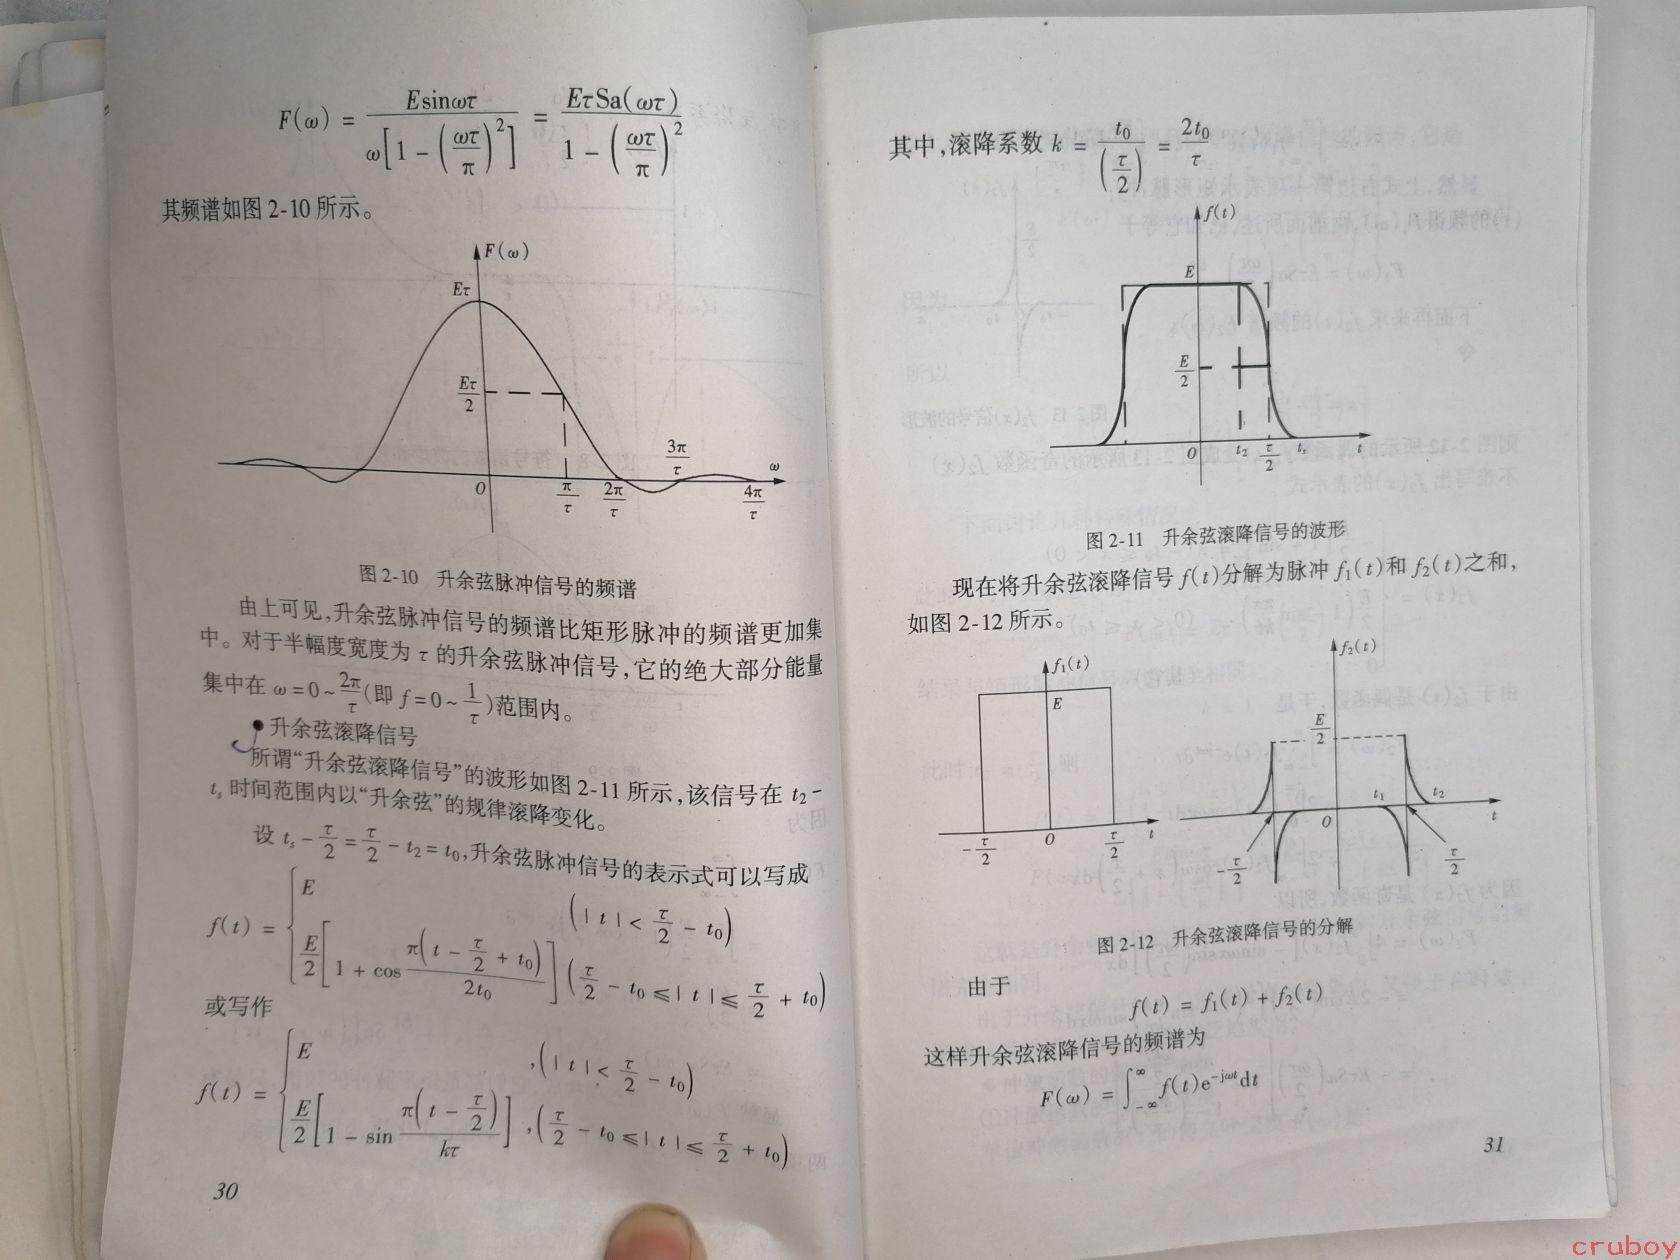 F(ω) = Esinωτ / ω[1 - (ωτ/π)²] = EτSa(ωτ) / 1 - (ωτ/π)²
其频谱如图 2-10 所示。
F(ω)
Eτ
Eτ/2
3π/τ
ω
O
π/τ
2π/τ
4π/τ
图 2-10 升余弦脉冲信号的频谱
由上可见,升余弦脉冲信号的频谱比矩形脉冲的频谱更加集
中。对于半幅度宽度为 τ 的升余弦脉冲信号,它的绝大部分能量
集中在 ω=0~2π/τ(即 f=0~1/τ)范围内。
● 升余弦滚降信号
所谓“升余弦滚降信号”的波形如图 2-11 所示,该信号在 t₂-
tₛ 时间范围内以“升余弦”的规律滚降变化。
设 tₛ - τ/2 = τ/2 - t₂ = t₀,升余弦脉冲信号的表示式可以写成
f(t) = { E (|t| < τ/2 - t₀)
E/2[1 + cos π(t - τ/2 + t₀)/2t₀] (τ/2 - t₀ ≤ |t| ≤ τ/2 + t₀)
或写作
f(t) = { E ,(|t| < τ/2 - t₀)
E/2[1 - sin π(t - τ/2)/kτ] ,(τ/2 - t₀ ≤ |t| ≤ τ/2 + t₀)
30
其中,滚降系数 k = t₀/(τ/2) = 2t₀/τ
f(t)
E
E/2
O
t₂
τ/2
tₛ
t
图 2-11 升余弦滚降信号的波形
现在将升余弦滚降信号 f(t)分解为脉冲 f₁(t)和 f₂(t)之和,
如图 2-12 所示。
f₁(t)
E
-τ/2
O
τ/2
t
f₂(t)
E/2
t₁
t₂
O
t
-τ/2
τ/2
图 2-12 升余弦滚降信号的分解
由于
f(t) = f₁(t) + f₂(t)
这样升余弦滚降信号的频谱为
F(ω) = ∫_{-∞}^{∞} f(t)e^{-jωt}dt
31
cruboy